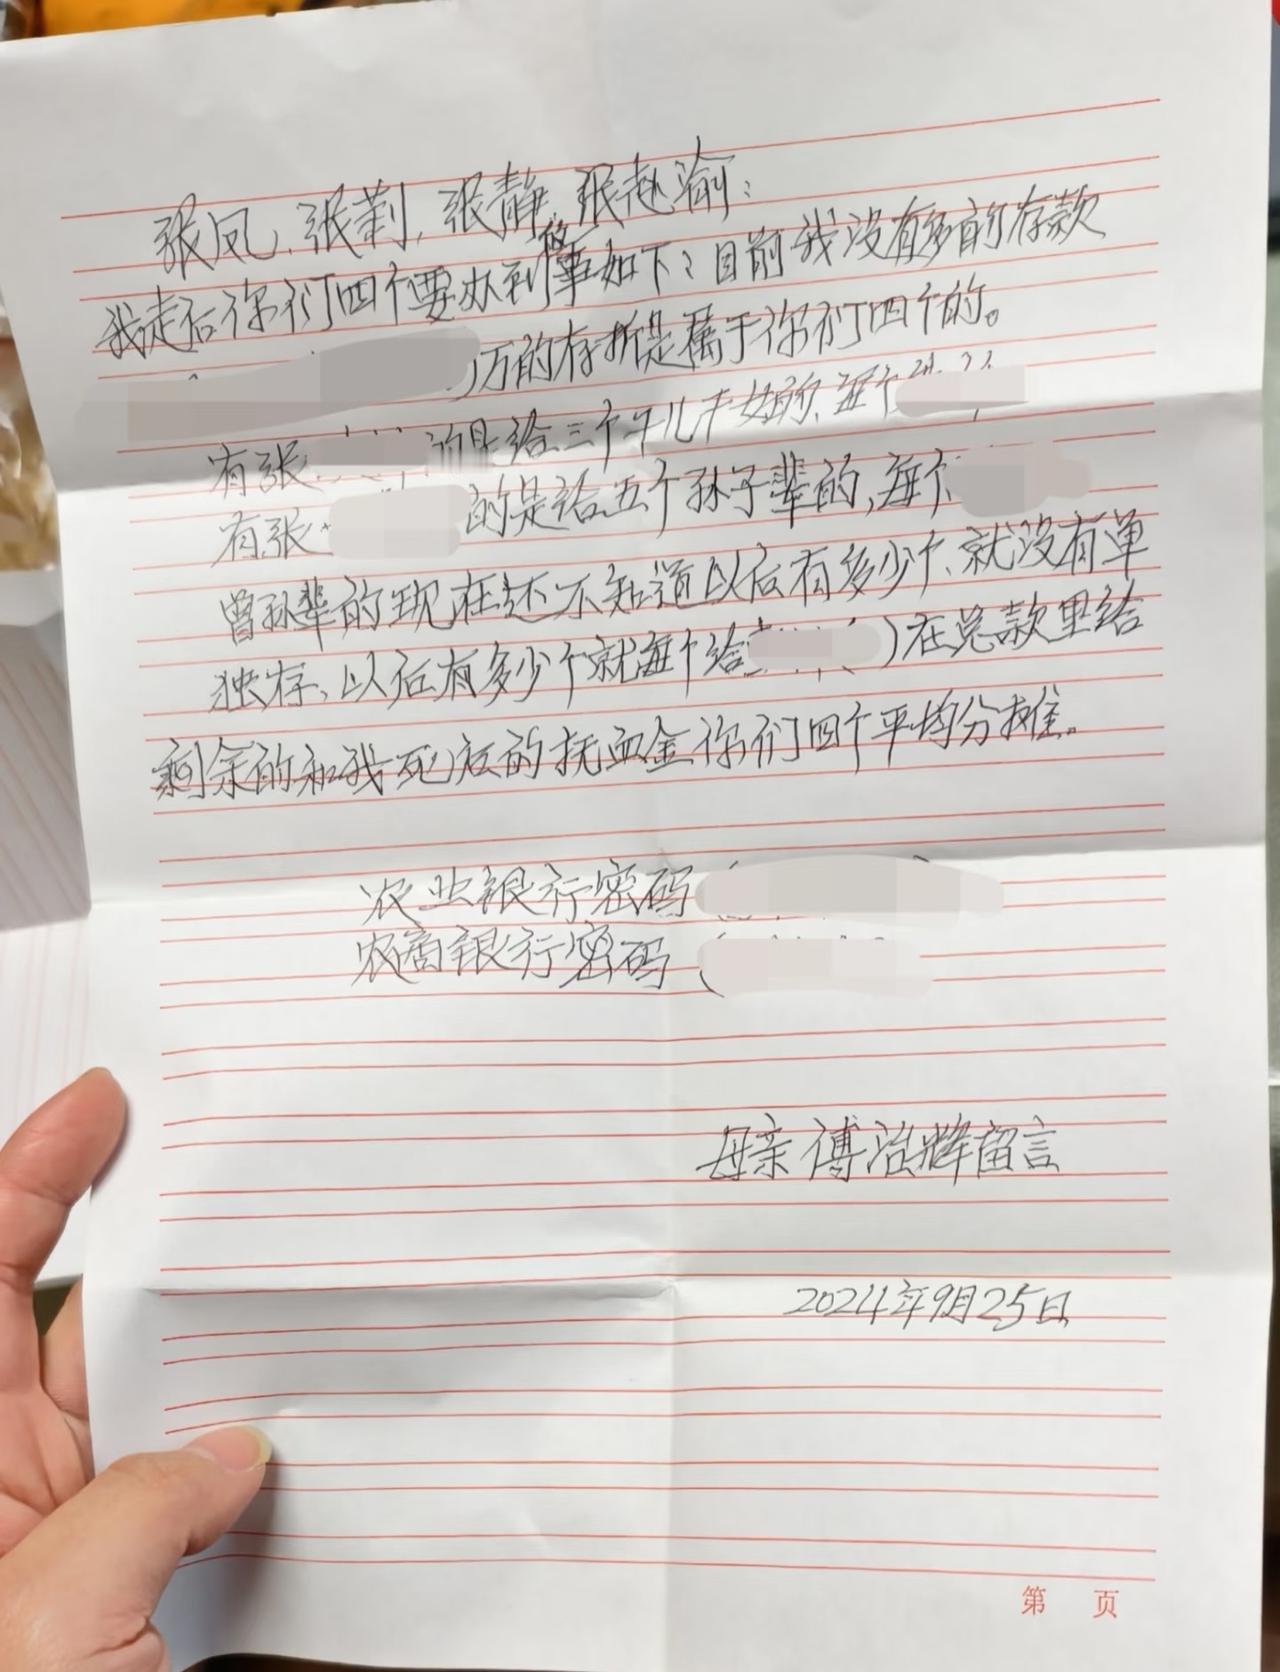 张凤、张莉,张静,张赵渝:
我走后你们四个要办到的事如下:目前我没有多的存款
万的存折是属于你们四个的。
有张 的是给三个 儿 女的、每个
有张 的是给五个孙子辈的,每个
曾孙辈的现在还不知道以后有多少个、就没有单
独存,以后有多少个就每个给 )在总款里给
剩余的和我死后的抚血金你们四个平均分摊。
农业银行密码(
农商银行密码(
母亲傅治辉留言
2024年9月25日
第 页